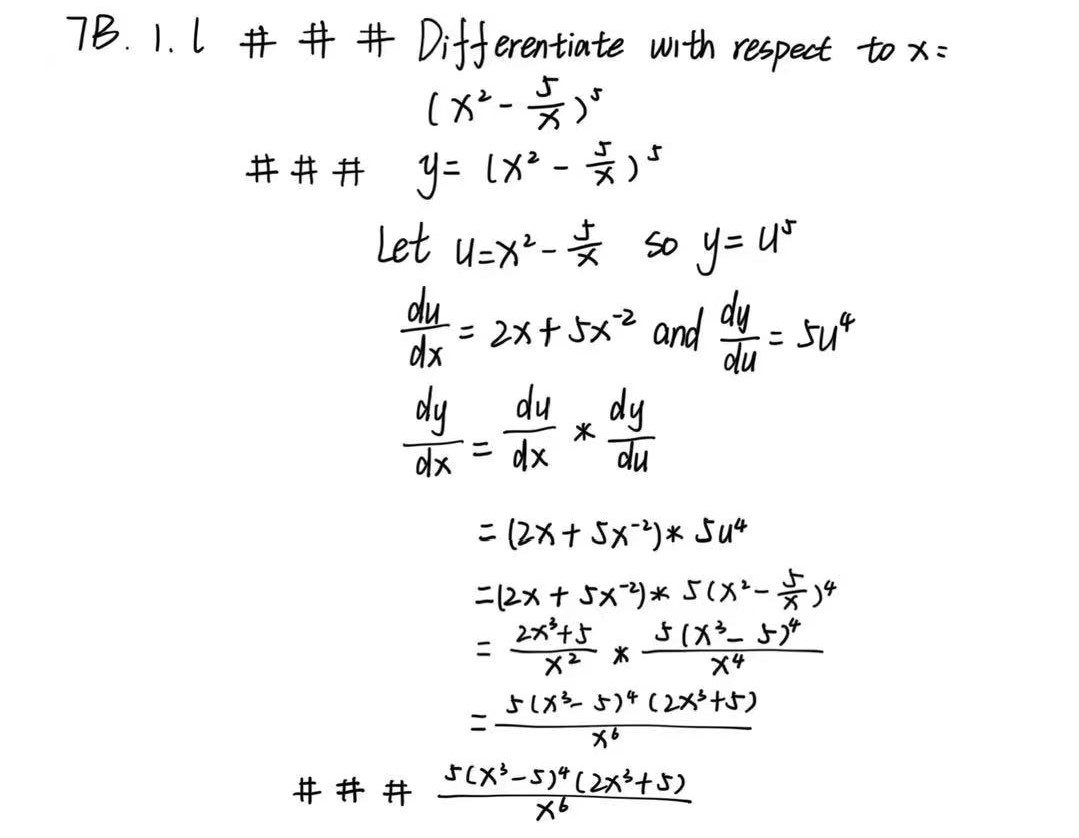 7B. 1. l # # # Differentiate with respect to x=
(x² - 5/x)⁵
# # # y= (x² - 5/x)⁵
Let u=x² - 5/x so y= u⁵
du/dx = 2x + 5x⁻² and dy/du = 5u⁴
dy/dx = du/dx * dy/du
= (2x + 5x⁻²) * 5u⁴
= (2x + 5x⁻²) * 5(x² - 5/x)⁴
= (2x³+5)/x² * 5(x³ - 5)⁴/x⁴
= 5(x³ - 5)⁴ (2x³+5)/x⁶
# # # 5(x³-5)⁴(2x³+5)/x⁶